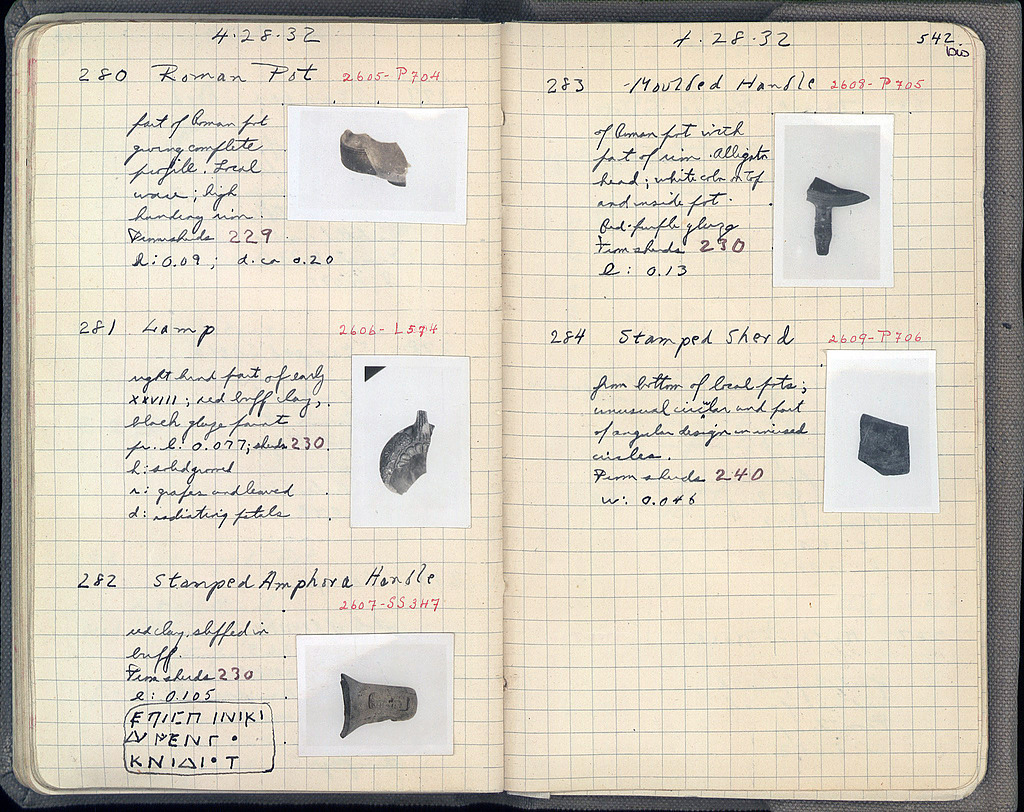 4·28·32
280 Roman Pot 2605-P704
part of Roman pot
giving complete
profile. Local
ware; high
handing rim.
From sherds 229
h: 0.09; d. ca 0.20
281 Lamp 2606-L574
right hand part of early
XXVIII; red buff clay,
black glaze paint
pr. l: 0.077; sherds 230
h: solid grooved
r: grapes and leaves
d: radiating petals
282 Stamped Amphora Handle
2607-SS347
red clay, slipped in
buff.
From sherds 230
l: 0.105
ΚΝΙΔΙ•Τ
4·28·32
542
bis
283 Moulded Handle 2608-P705
of Roman pot with
part of rim. Alligator
head; white colr on top
and inside pot.
Red-purple glaze
From sherds 230
l: 0.13
284 Stamped Sherd 2609-P706
from bottom of local pots;
unusual circular and part
of angular design in incised
circles.
From sherds 240
w: 0.046